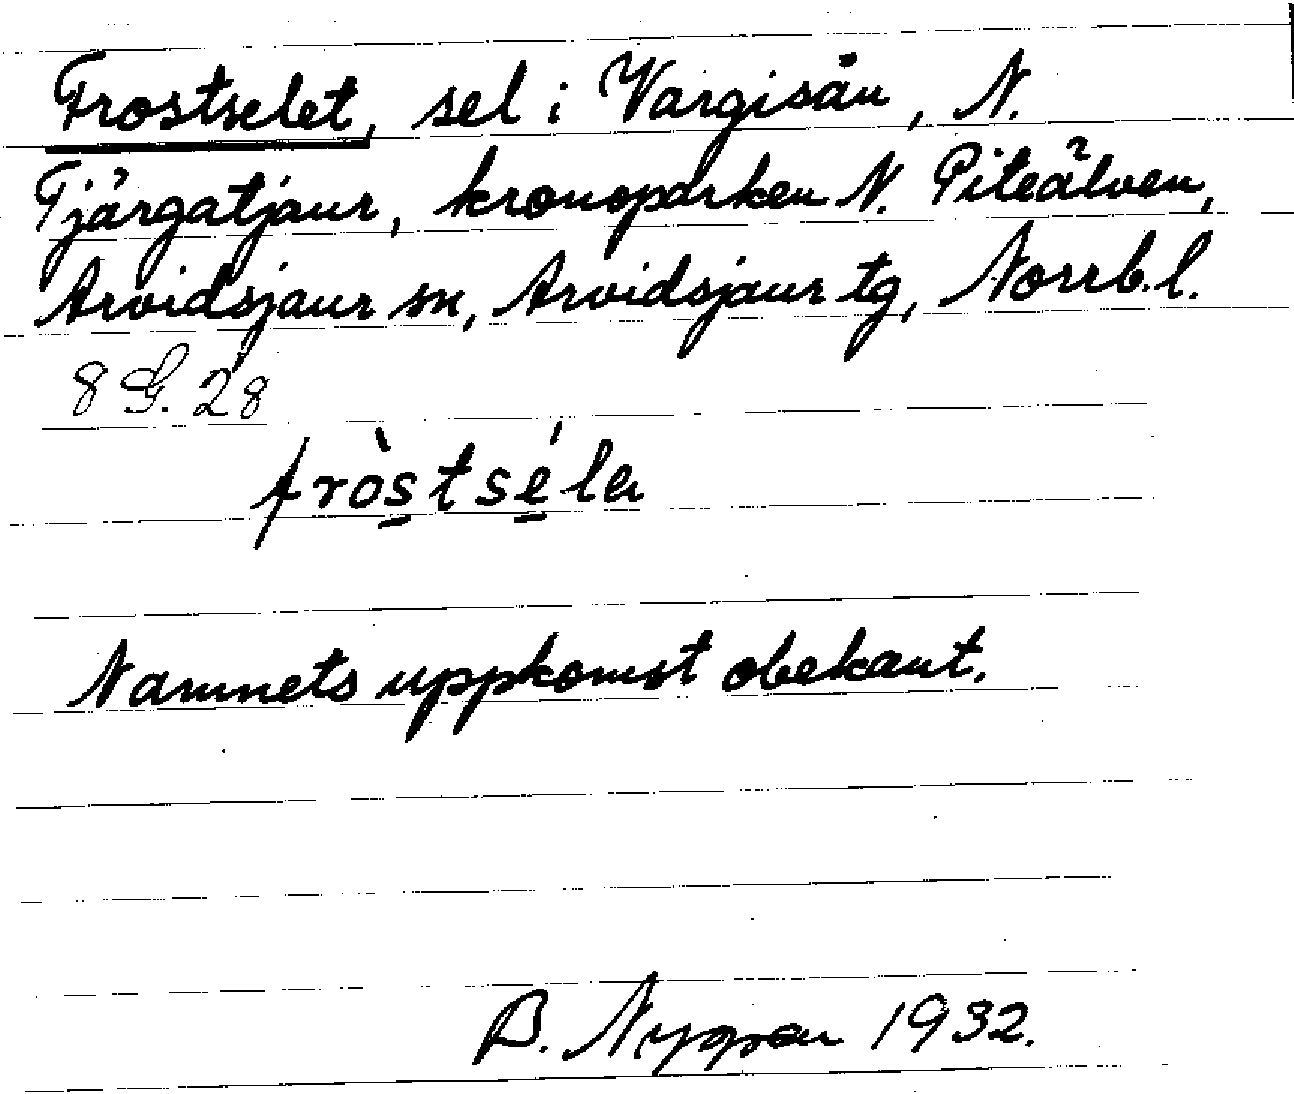 Frostselet, sel i Vargisån, N.
Tjärgatjaur, kronoparken N. Piteälven,
Arvidsjaur sn, Arvidsjaur tg, Norrb. l.
8 G. 28
fròstséla
Namnets uppkomst obekant.
B. Nygren 1932.